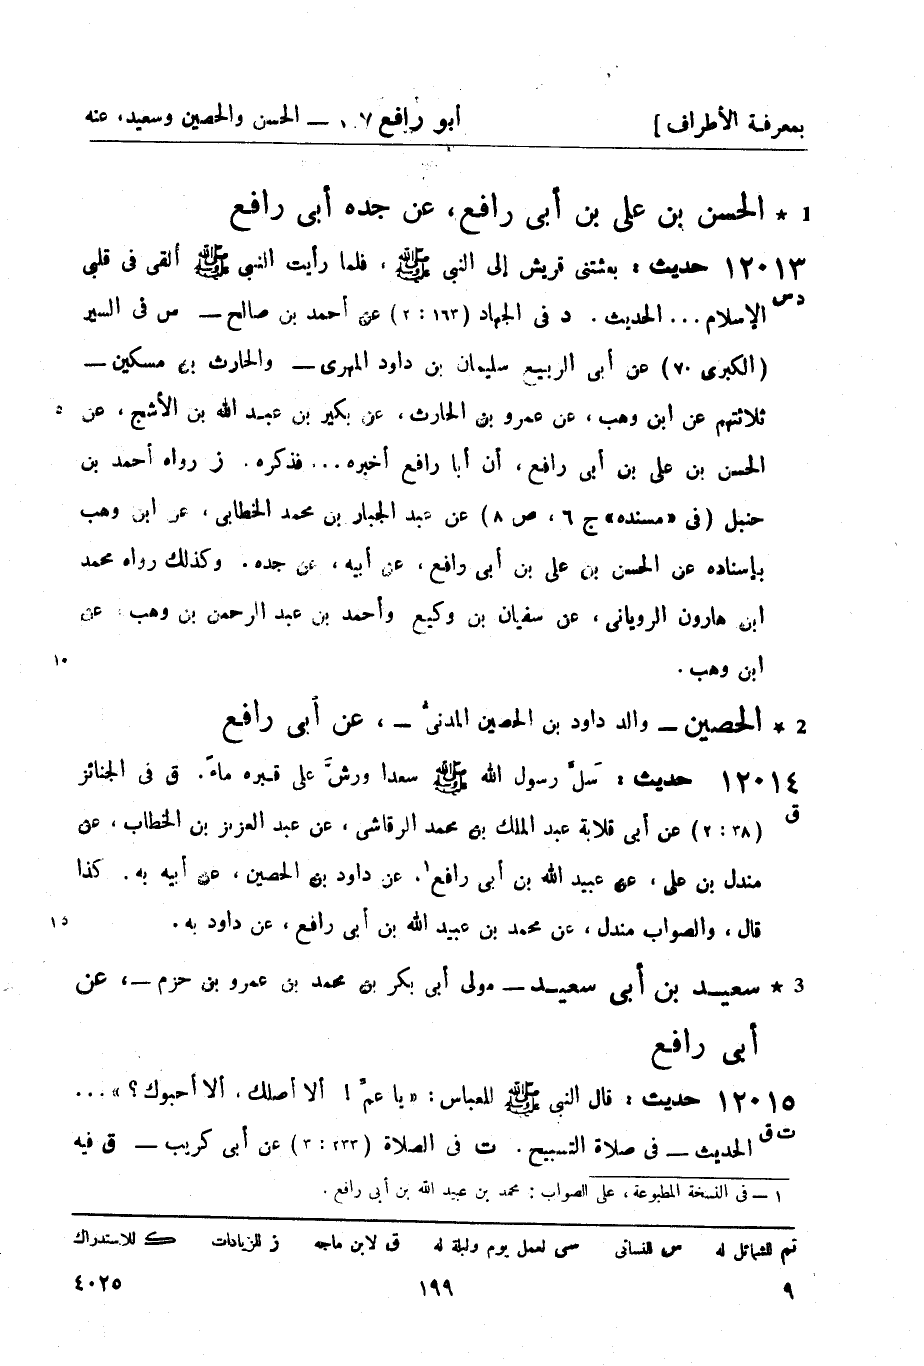 بمعرفة الأطراف ] أبو رافع ٧٠١ — الحسن والحصين وسعيد، عنه
1 * الحسن بن على بن أبى رافع، عن جده أبى رافع
١٢٠١٣ حديث: بعثتنى قريش إلى النبى ﷺ، فلما رأيت النبى ﷺ ألقى فى قلبى
دس الإسلام ... الحديث. د فى الجهاد (١٦٣ : ٢) عن أحمد بن صالح — س فى السير
(الكبرى ٧٠) عن أبى الربيع سليمان بن داود المهرى — والحارث بن مسكين —
ثلاثتهم عن ابن وهب، عن عمرو بن الحارث، عن بكير بن عبد الله بن الأشج، عن ٥
الحسن بن على بن أبى رافع، أن أبا رافع أخبره ... فذكره. ز رواه أحمد بن
حنبل (فى «مسنده» ج ٦، ص ٨) عن عبد الجبار بن محمد الخطابى، عن ابن وهب
بإسناده عن الحسن بن على بن أبى رافع، عن أبيه، عن جده. وكذلك رواه محمد
ابن هارون الرويانى، عن سفيان بن وكيع وأحمد بن عبد الرحمن بن وهب، عن
ابن وهب. ١٠
2 * الحصين — والد داود بن الحصين المدنى —، عن أبى رافع
١٢٠١٤ حديث: سَلَّ رسول الله ﷺ سعدا ورشَّ على قبره ماءً. ق فى الجنائز
ق (٣٨ : ٢) عن أبى قلابة عبد الملك بن محمد الرقاشى، عن عبد العزيز بن الخطاب، عن
مندل بن على، عن عبيد الله بن أبى رافع¹، عن داود بن الحصين، عن أبيه به. كذا
قال، والصواب مندل، عن محمد بن عبيد الله بن أبى رافع، عن داود به. ١٥
3 * سعيد بن أبى سعيد — مولى أبى بكر بن محمد بن عمرو بن حزم —، عن
أبى رافع
١٢٠١٥ حديث: قال النبى ﷺ للعباس: «يا عمّ! ألا أصلك، ألا أحبوك؟» ...
ت ق الحديث — فى صلاة التسبيح. ت فى الصلاة (٢٣٣ : ٣) عن أبى كريب — ق فيه
١ — فى النسخة المطبوعة، على الصواب: محمد بن عبيد الله بن أبى رافع.
تم للشمائل له س للنسائى سى لعمل يوم وليلة له ق لابن ماجه ز للزيادات ك للاستدراك
٩ ١٩٩ ٤٠٢٥